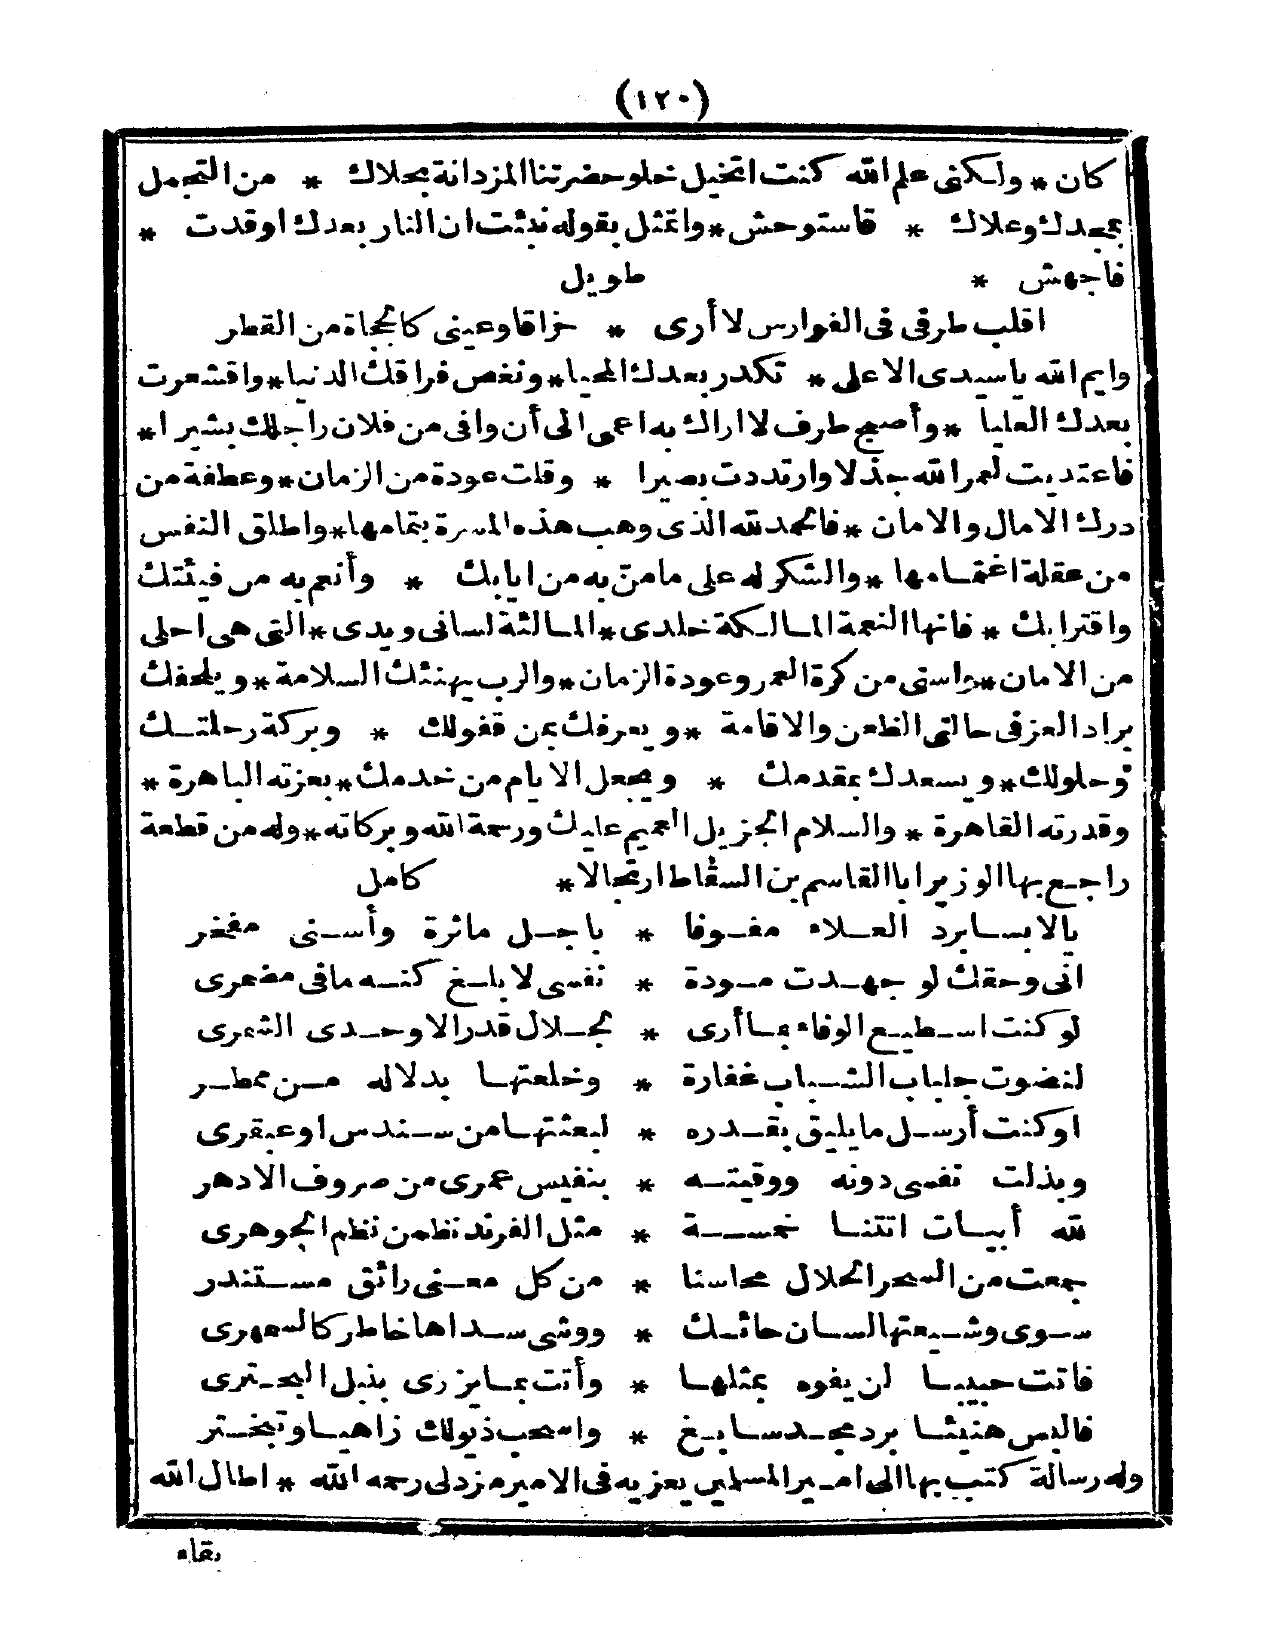 (١٢٠)
كان * ولكنى علم الله كنت اتخيل خلو حضرتنا المزدانة بحلاك * من التجمل
بمجدك وعلاك * فاستوحش * واتمثل بقوله نبئت ان النار بعدك اوقدت *
فاجهش * طويل
اقلب طرفى فى الفوارس لا أرى * حزاقا وعينى كالحجاة من القطر
وايم الله ياسيدى الاعلى * تكدر بعدك المحيا * ونغص فراقك الدنيا * واقشعرت
بعدك العليا * وأصبح طرف لا اراك به اعمى الى أن وافى من فلان راجلك بشيرا *
فاعتديت لعمر الله جذلا وارتددت بصيرا * وقلت عودة من الزمان * وعطفة من
درك الامال والامان * فالحمد لله الذى وهب هذه المسرة بتمامها * واطلق النفس
من عقلة اغتمامها * والشكر له على مامنّ به من ايابك * وأنعم به من فيئتك
واقترابك * فانها النعمة المالكة خلدى * المالئة لسانى ويدى * التى هى احلى
من الامان * واسنى من كرة العمر وعودة الزمان * والرب يهنئك السلامة * ويلحفك
براد العز فى حالتى الظعن والاقامة * ويعرفك بمن قفولك * وبركة رحلتك
وحلولك * ويسعدك بمقدمك * ويجعل الايام من خدمك * بعزته الباهرة *
وقدرته القاهرة * والسلام الجزيل العميم عليك ورحمة الله وبركاته * وله من قطعة
راجع بها الوزير ابا القاسم بن السقاط ارتجالا * كامل
يالابسا برد العلاء مفوفا * باجل ماثرة وأسنى مفخر
انى وحقك لو جهدت مودة * نفسى لابلغ كنه مافى مضمرى
لو كنت اسطيع الوفاء بما أرى * لجلال قدر الاوحدى الشمرى
لنضوت جلباب الشباب غفارة * وخلعتها بدلاله من ممطر
او كنت أرسل مايليق بقدره * لبعثتها من سندس او عبقرى
وبذلت نفسى دونه ووقيته * بنفيس عمرى من صروف الادهر
لله أبيات اتتنا خمسة * مثل الفرند نظمن نظم الجوهرى
جمعت من السحر الحلال محاسنا * من كل معنى رائق مستندر
سوى وشيعتها لسان حائك * ووشى سداها خاطر كالسمهرى
فاتت حبيبا لن يفوه بمثلها * وأتت بما يزرى بنبل البحترى
فالبس هنيئا برد مجد سابغ * واسحب ذيولك زاهيا وتبختر
وله رسالة كتب بها الى امير المسلمين يعزيه فى الامير مزدلى رحمه الله * اطال الله
بقاء